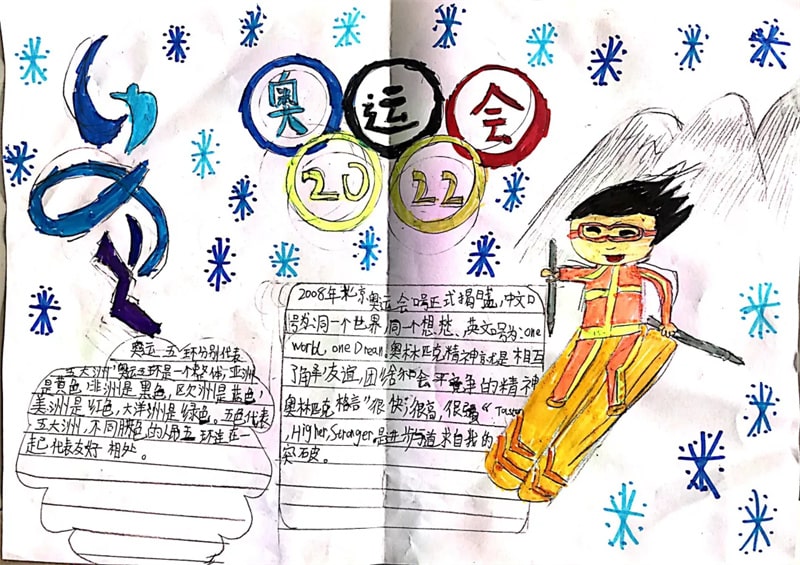 奥运会
2022
2008年北京奥运会口号正式揭晓,中文口
号为:同一个世界 同一个想,英文口号为:one
world, one Dream.奥林匹克精神就是相互
了解、友谊,团结和公平竞争的精神
奥林匹克格言"很快"很高,很强"
,Higher, Stronger是进步与追求自我的
突破。
奥运五环分别代表
五大洲,奥运五环是一个整体,亚洲
是黄色,非洲是黑色,欧洲是蓝色,
美洲是红色,大洋洲是绿色。五色代表
五大洲,不同肤色的人用五环连在一
起代表友好相处。